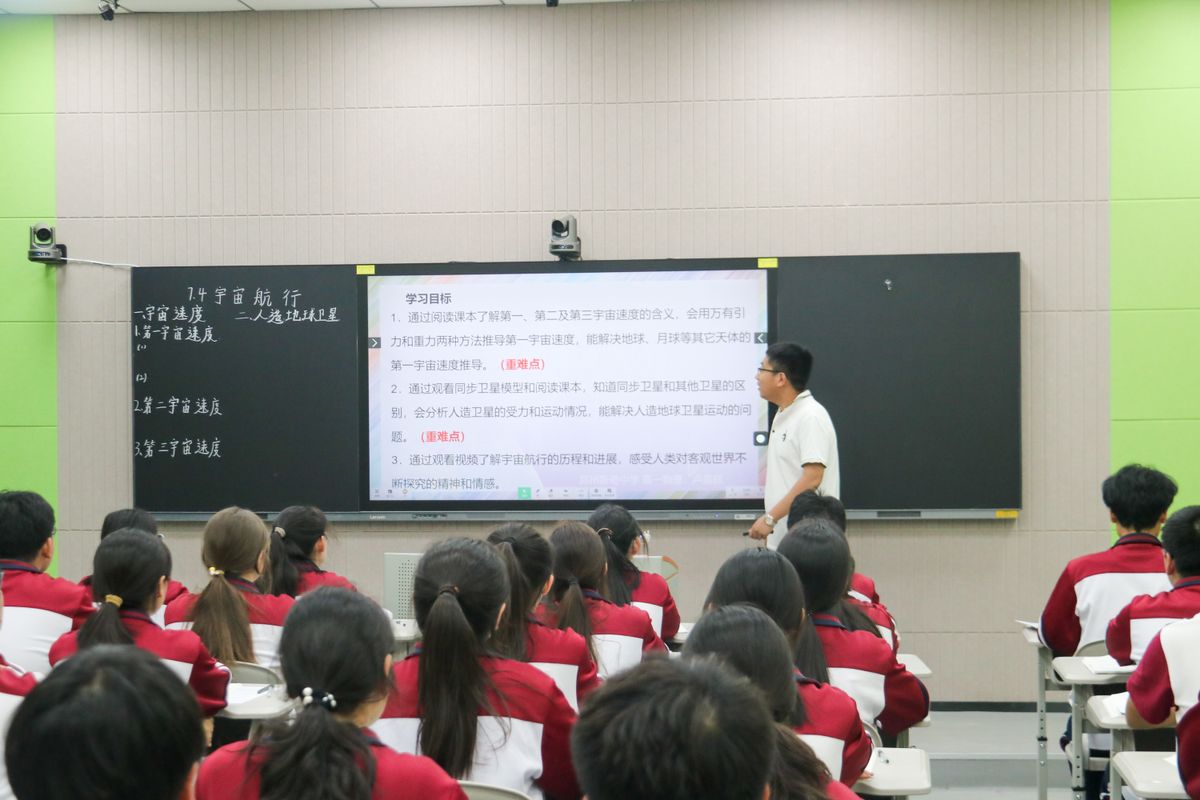 7.4 宇宙航行
一.宇宙速度 二.人造地球卫星
1.第一宇宙速度
(1)
(2)
2.第二宇宙速度
3.第三宇宙速度
学习目标
1、通过阅读课本了解第一、第二及第三宇宙速度的含义，会用万有引
力和重力两种方法推导第一宇宙速度，能解决地球、月球等其它天体的
第一宇宙速度推导。（重难点）
2、通过观看同步卫星模型和阅读课本，知道同步卫星和其他卫星的区
别，会分析人造卫星的受力和运动情况，能解决人造地球卫星运动的问
题。（重难点）
3、通过观看视频了解宇宙航行的历程和进展，感受人类对客观世界不
断探究的精神和情感。
Lenovo